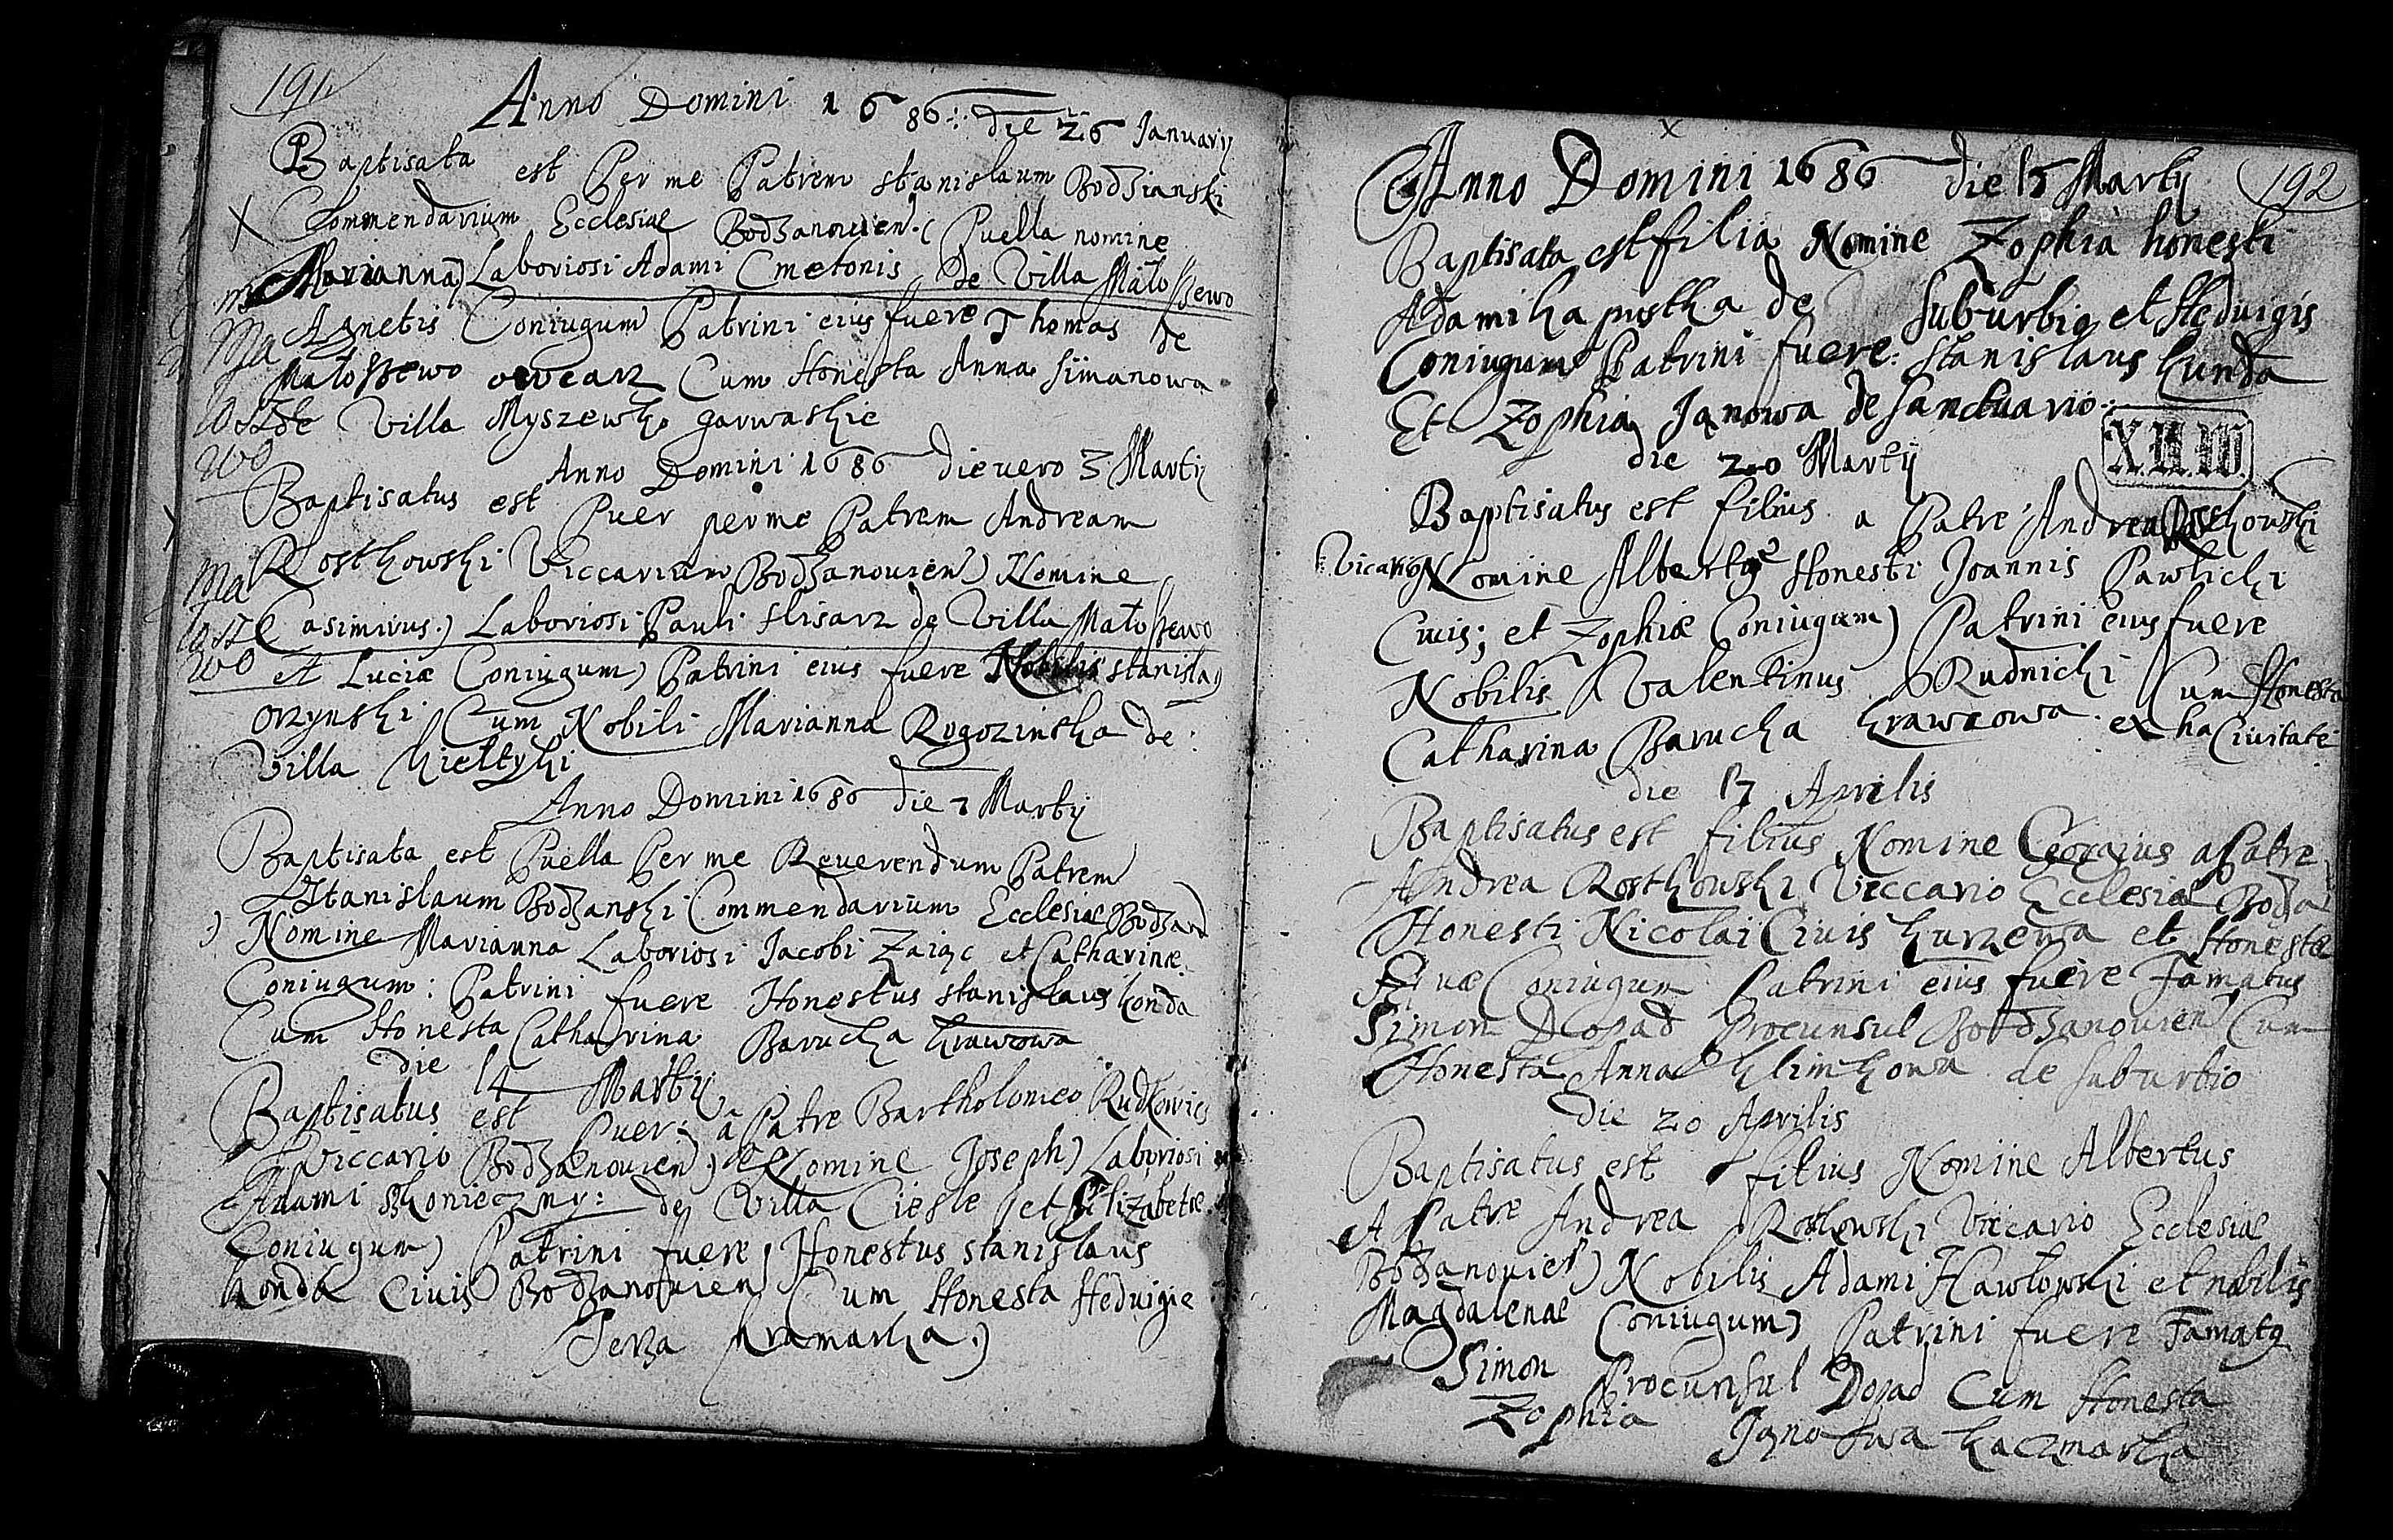 191
Anno Domini 1686 die 26 Januarij
Baptisata est Per me Patrem Stanislaum Bodzianski
X Commendarium Ecclesiae Bodzanouien. ( Puella nomine
Marianna) Laboriosi Adami Cmetonis de Villa Mało szewo
Agnetis Coniugum Patrini eius fuere Thomas de
Małoszewo owcarz Cum Honesta Anna Simanowa
de Villa Myszewko garwaskie
Ma
łosze
wo
Anno Domini 1686 die vero 3 Martij
Baptisatus est Puer per me Patrem Andream
Rostkowski Viccarium Bodzanouien) Nomine
Casimirus.) Laboriosi Pauli flisarz de Villa Małoszewo
et Luciæ Coniugum) Patrini eius fuere Nobilis Stanisla9
orzynski Cum Nobili Marianna Rogozinska de:
Villa Kieltyki
Ma
łosze
wo
Anno Domini 1686 die 7 Martij
Baptisata est Puella Per me Reuerendum Patrem
Stanislaum Bodzanski Commendarium Ecclesiae Bodzan
Nomine Marianna Laboriosi Jacobi Zaiąc et Catharinæ
Coniugum: Patrini fuere Honestus Stanislaus Konda
Cum Honesta Catharina Barucha Krawcowa
die 14 Martij
Baptisatus est Puer: a Patre Bartholomeo
Viccario Bodzanouien.) Nomine Joseph) Laboriosi
Adami Skonieczny: de Villa Ciesle et Elizabetæ
Coniugum) Patrini fuere, Honestus Stanislaus
Konda Ciuis Bodzanouien Cum Honesta Heduigie
kramarka.)
192
X
Anno Domini 1686 die 15 Martij
Baptisata est filia Nomine Zophia honesti
Adami kapustka de suburbio et Heduigis
Coniugum Patrini fuere: Stanislaus kunda
Et Zophia Janowa de Sanctuario.
X.H.W.
die 20 Martij
Baptisatus est filius a Patre Andrea Rostkowski
Vicario Nomine Albertus Honesti Joannis Pawlicki
Ciuis; et Zophiæ Coniugum) Patrini eius fuere
Nobilis Valentinus Rudnicki Cum Honesta
Catharina Barucha krawcowa ex hac Ciuitate
die 17 Aprilis
Baptisatus est filius Nomine Georgius a Patre
Andrea Rostkowski Viccario Ecclesiae Bodza
Honesti Nicolai Ciuis kurzewa et Honestæ
Euæ Coniugum Patrini eius fuere Famatus
Simon Dopad Procunsul Bodzanouien Cum
Honesta Anna Klimkowa de suburbio
die 20 Aprilis
Baptisatus est filius Nomine Albertus
A Patre Andrea Roskowski Viccario Ecclesiae
Bodzanouien) Nobilis Adami Hawłowski et nobilis
Magdalenae Coniugum) Patrini fuere Famat9
Simon Procunsul Dopad Cum Honesta
Zophia kaczmarka